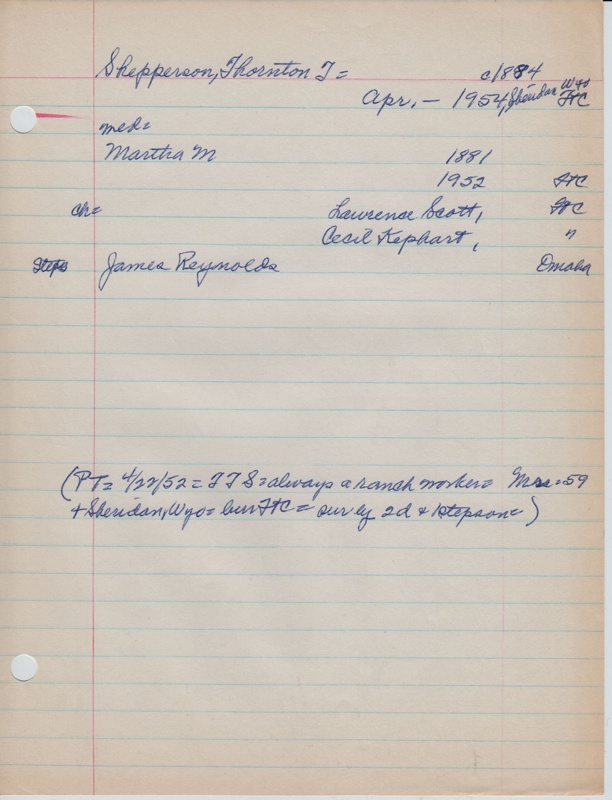 Shepperson, Thornton T= c/884
Apr. — 1954, Sheridan Wyo FtC
med=
Martha M 1881
1952 FtC
ch= Lawrence Scott, FtC
Cecil Kephart, "
Steps James Reynolds Omaha
(PT= 4/22/52= TTS= always a ranch worker= Mrs=59
+ Sheridan, Wyo= bur FtC= sur by 2d + 1stepson= )